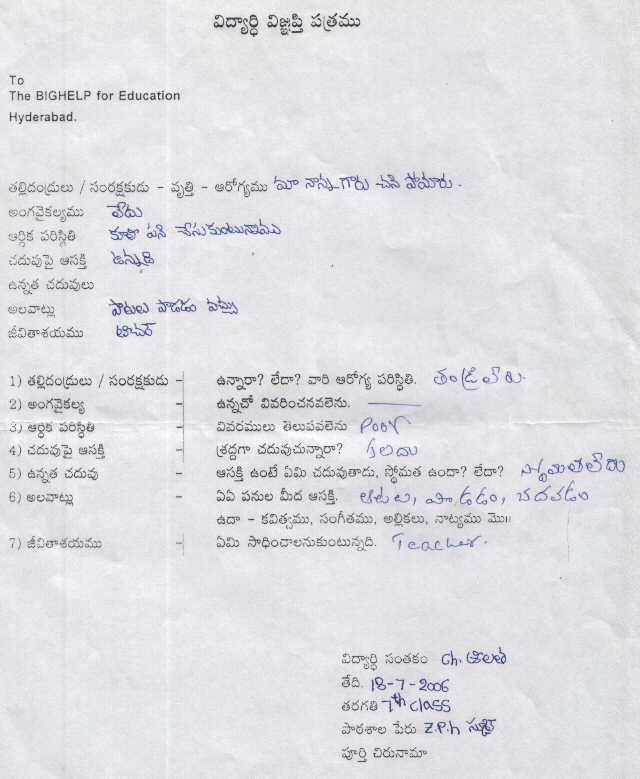 విద్యార్థి విజ్ఞప్తి పత్రము
To
The BIGHELP for Education
Hyderabad.
తల్లిదండ్రులు / సంరక్షకుడు - వృత్తి - ఆరోగ్యము మా నాన్న గారు చని పోయారు.
అంగవైకల్యము లేదు
ఆర్థిక పరిస్థితి కూలి పని చేసుకుంటునాము
చదువుపై ఆసక్తి ఉన్నది
ఉన్నత చదువులు
అలవాట్లు పాటలు పాడడం
జీవితాశయము టీచర్
1) తల్లిదండ్రులు / సంరక్షకుడు - ఉన్నారా? లేదా? వారి ఆరోగ్య పరిస్థితి. తండ్రి లేరు.
2) అంగవైకల్య - ఉన్నచో వివరించనవలెను. ——
3) ఆర్థిక పరిస్థితి - వివరములు తెలుపవలెను Poor
4) చదువుపై ఆసక్తి - శ్రద్దగా చదువుచున్నారా? కలదు
5) ఉన్నత చదువు - ఆసక్తి ఉంటే ఏమి చదువుతాడు, స్థోమత ఉందా? లేదా? స్థోమతలేదు
6) అలవాట్లు - ఏఏ పనుల మీద ఆసక్తి. ఆటలు, పాడడం, చదవడం
ఉదా - కవిత్వము, సంగీతము, అల్లికలు, నాట్యము మొ॥
7) జీవితాశయము - ఏమి సాధించాలనుకుంటున్నది. Teacher.
విద్యార్థి సంతకం Ch. లత
తేది. 18-7-2006
తరగతి 7th class
పాఠశాల పేరు Z.P.h స్కూల్
పూర్తి చిరునామా